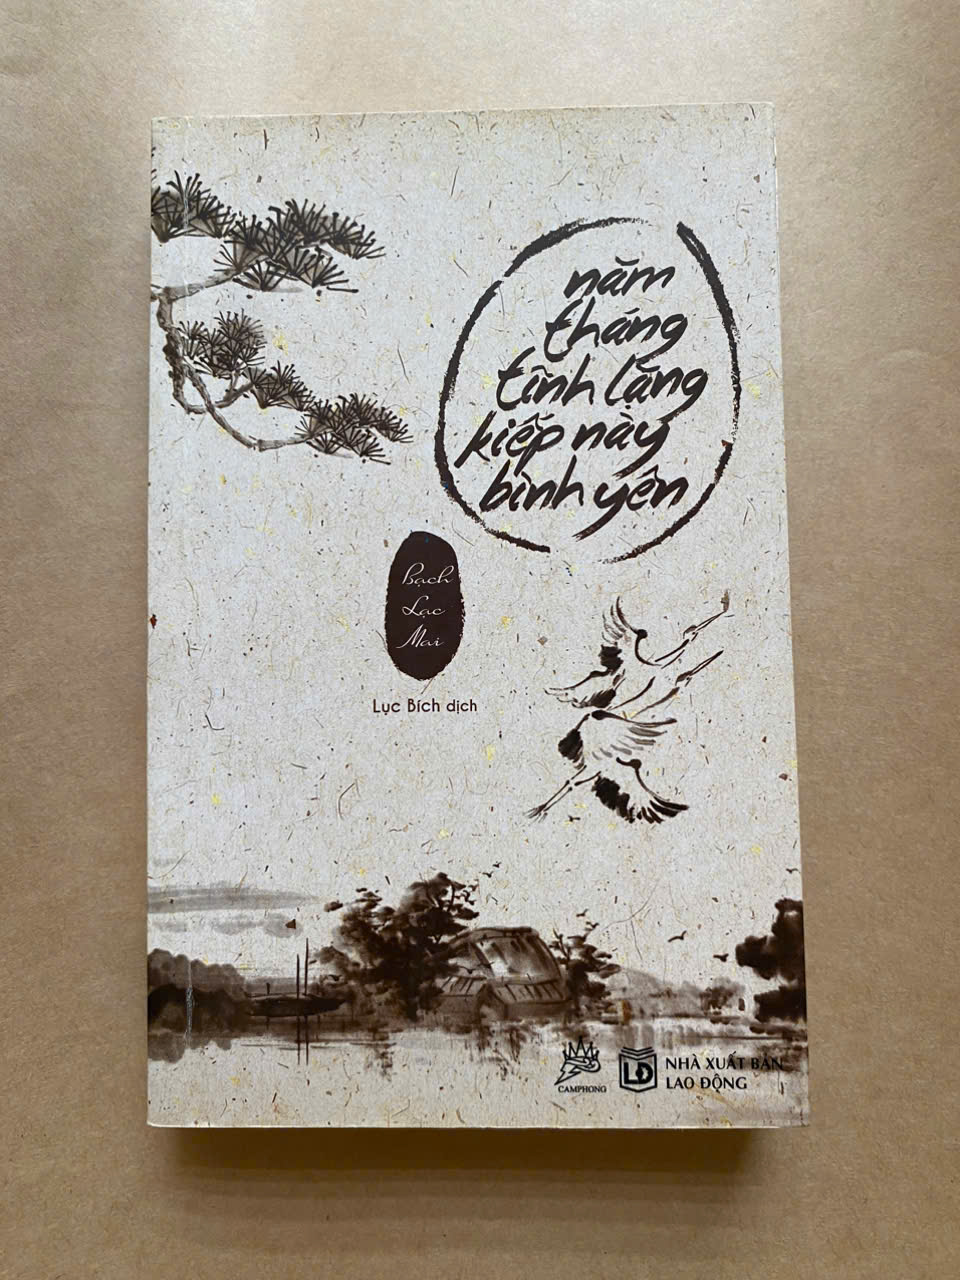 năm
tháng
tĩnh lặng
kiếp này
bình yên
Bạch
Lạc
Mai
Lục Bích dịch
CAMPHONG
LĐ
NHÀ XUẤT BẢN
LAO ĐỘNG